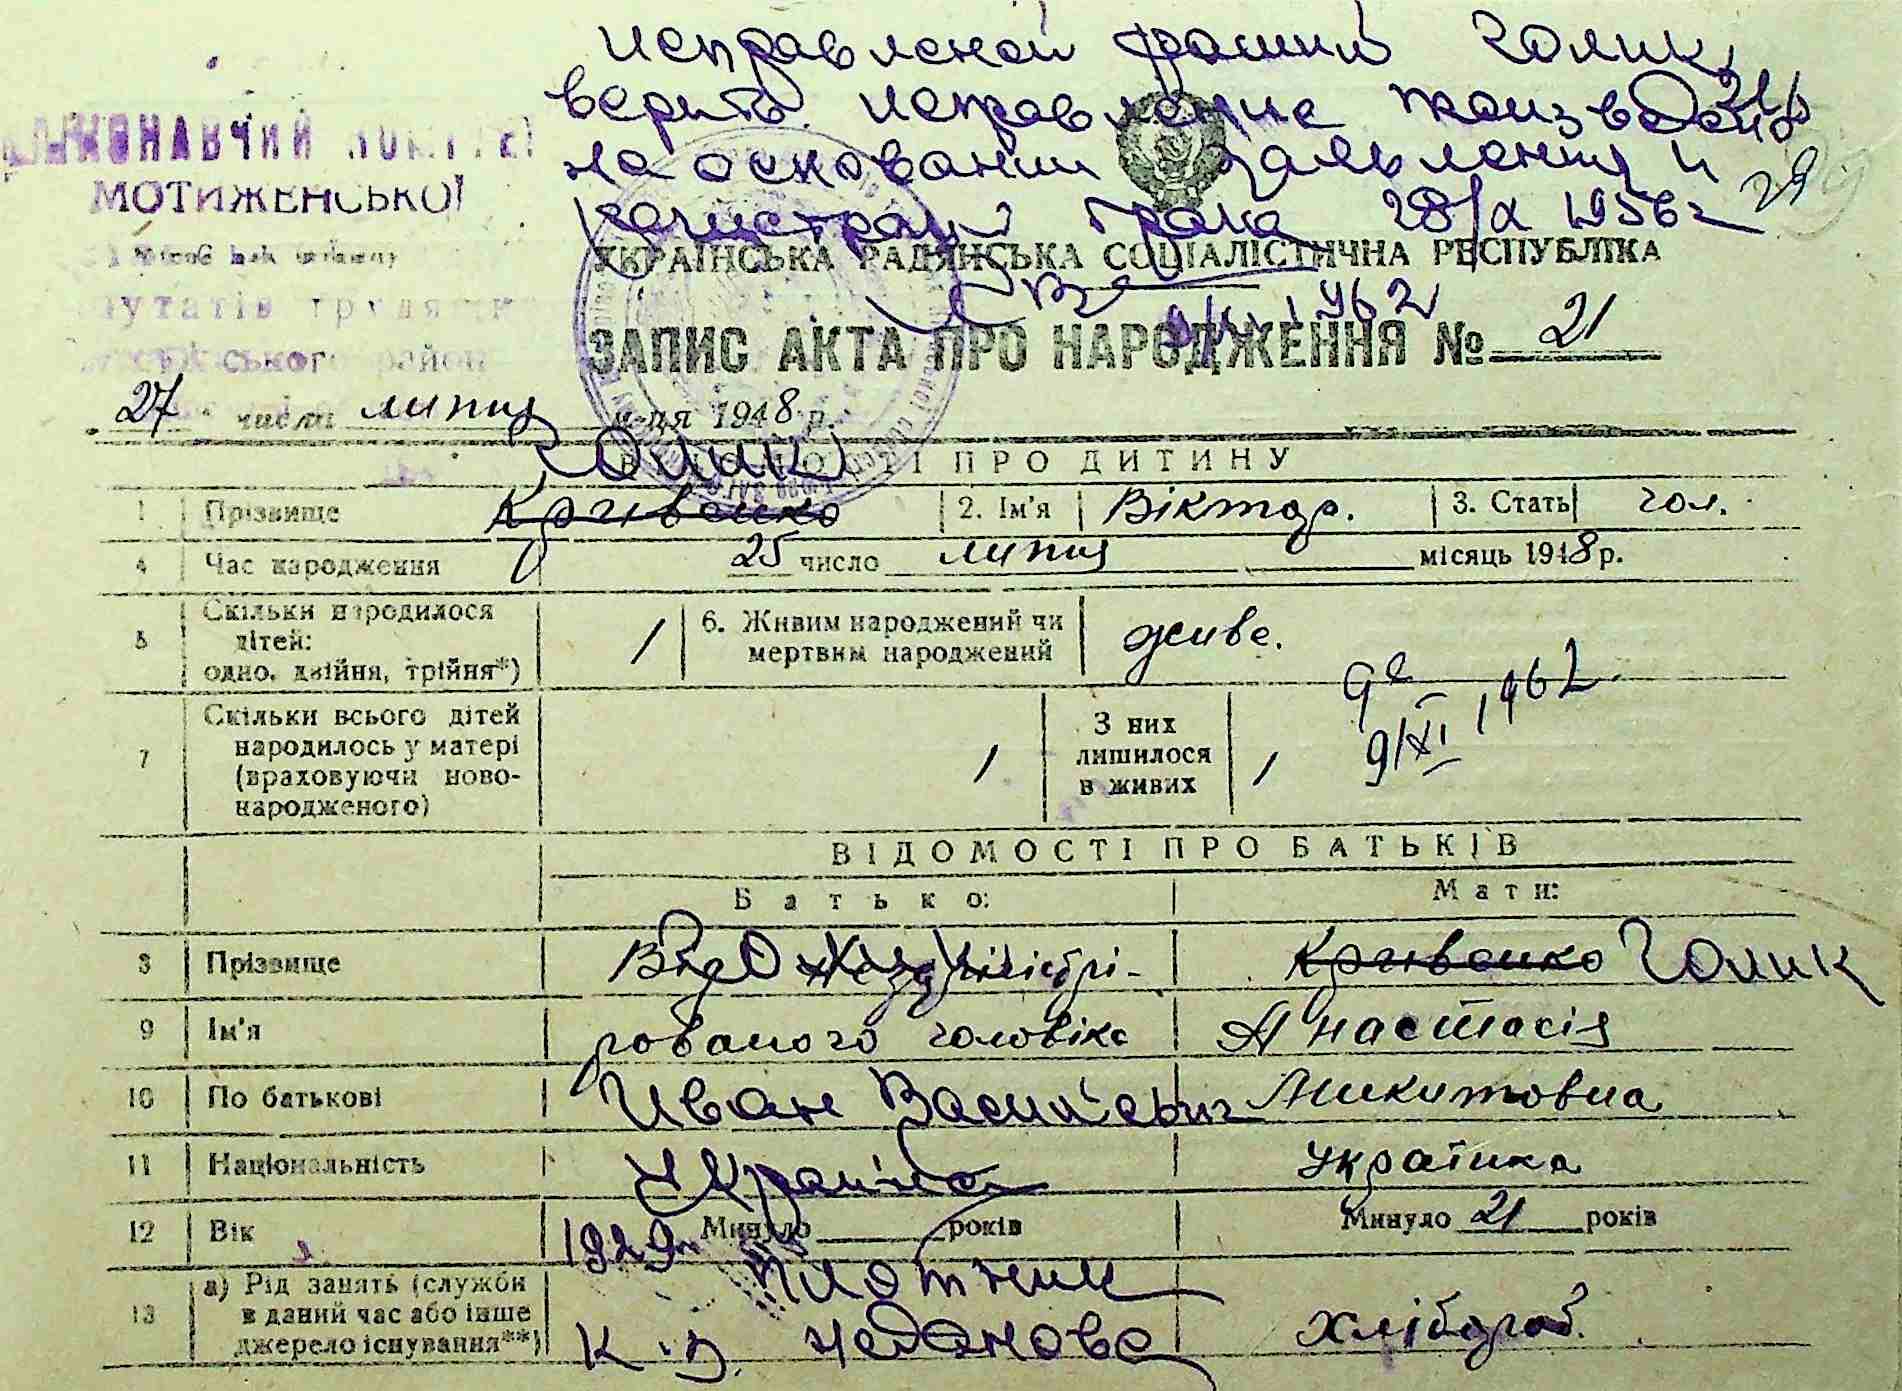 Исправленой фамилии Голик
верить. Исправление произведено
на основании заявления и
регистрации брака 28/X 1956 г
21
29
ВИКОНАВЧИЙ КОМІТЕТ
МОТИЖЕНСЬКОЇ
депутатів трудящих
ського району
УКРАЇНСЬКА РАДЯНСЬКА СОЦІАЛІСТИЧНА РЕСПУБЛІКА
1962
ЗАПИС АКТА ПРО НАРОДЖЕННЯ № 21
27 числа липня м-ця 1948 р.
Голик
ВІДОМОСТІ ПРО ДИТИНУ
1 Прізвище Кривенко 2. Ім'я Віктор. 3. Стать чол.
4 Час народження 25 число липня місяць 1948 р.
5 Скільки народилося дітей: одно, двійня, трійня*) 1 6. Живим народжений чи мертвим народжений живе.
9/XI 1962
7 Скільки всього дітей народилось у матері (враховуючи новонародженого) 1 З них лишилося в живих 1
ВІДОМОСТІ ПРО БАТЬКІВ
Батько: Мати:
8 Прізвище Від незареєстрі- Кривенко Голик
9 Ім'я рованого чоловіка Анастасія
10 По батькові Иван Васильевич Микитовна
11 Національність Украінец українка
12 Вік 1929 Минуло років Минуло 21 років
13 а) Рід занять (служби в даний час або інше джерело існування**) плотник хлібороб.
к-з. Чеданова